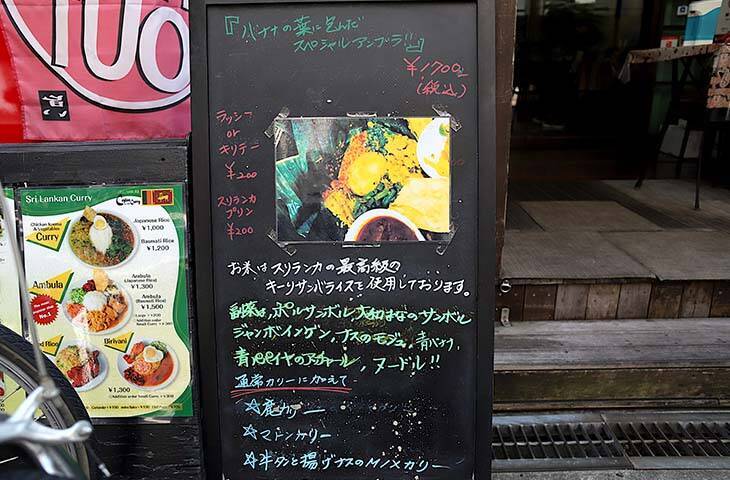 『バナナの葉に包んだ
スペシャルアンブラ!!』
¥1700-
(税込)
ラッシー
or
キリテー
¥200
スリランカ
プリン
¥200
お米はスリランカの最高級の
キーリサンバライスを使用しております。
副菜は、ポルサンボル、大和まなのサンボル
ジャンボインゲン、ナスのモジュ、青バナナ、
青パパイヤのアチャール、ヌードル!!
通常カリーに加えて
☆鹿カリー
☆マトンカリー
☆牛タンと揚げナスのMIXカリー
Sri Lankan Curry
Chicken Keema
& Vegetables
Curry
Japanese Rice
¥1,000
Basmati Rice
¥1,200
Ambula
No.1
Ambula
(Japanese Rice)
¥1,300
Ambula
(Basmati Rice)
¥1,500
Biriyani
¥1,300